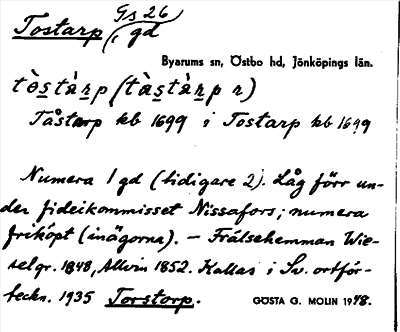 Gs 26
Tostarp, gd
Byarums sn, Östbo hd, Jönköpings län.
tòs̲tàṟp (tàs̲tàṟp r)
Tåstarp kb 1699 i Tostarp kb 1699
Numera 1 gd (tidigare 2). Låg förr un-
der fideikommisset Nissafors; numera
friköpt (inägorna). – Frälsehemman Wie-
selgr. 1848, Allvin 1852. Kallas i Sv. ortför-
teckn. 1935 Torstorp.
GÖSTA G. MOLIN 1948.